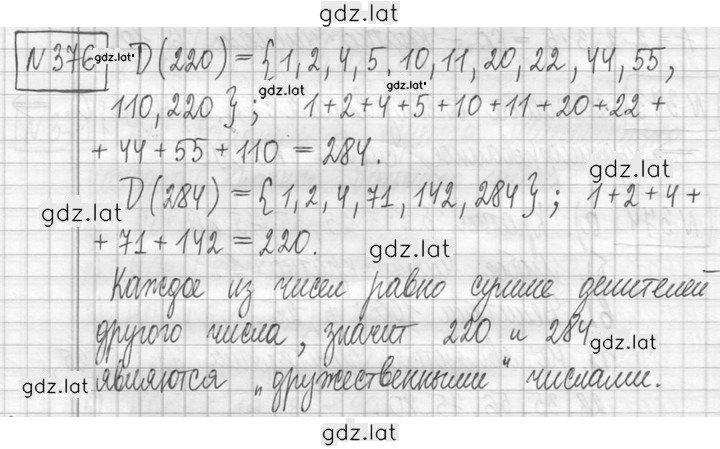 gdz.lat
N 376 gdz.lat D(220) = {1, 2, 4, 5, 10, 11, 20, 22, 44, 55,
gdz.lat gdz.lat
110, 220}; 1+2+4+5+10+11+20+22+
+44+55+110 = 284.
gdz.lat
D(284) = {1, 2, 4, 71, 142, 284}; 1+2+4+
gdz.lat
+71+142 = 220.
gdz.lat
Каждое из чисел равно сумме делителей
другого числа, значит 220 и 284
gdz.lat
gdz.lat являются „дружественными" числами.
gdz.lat